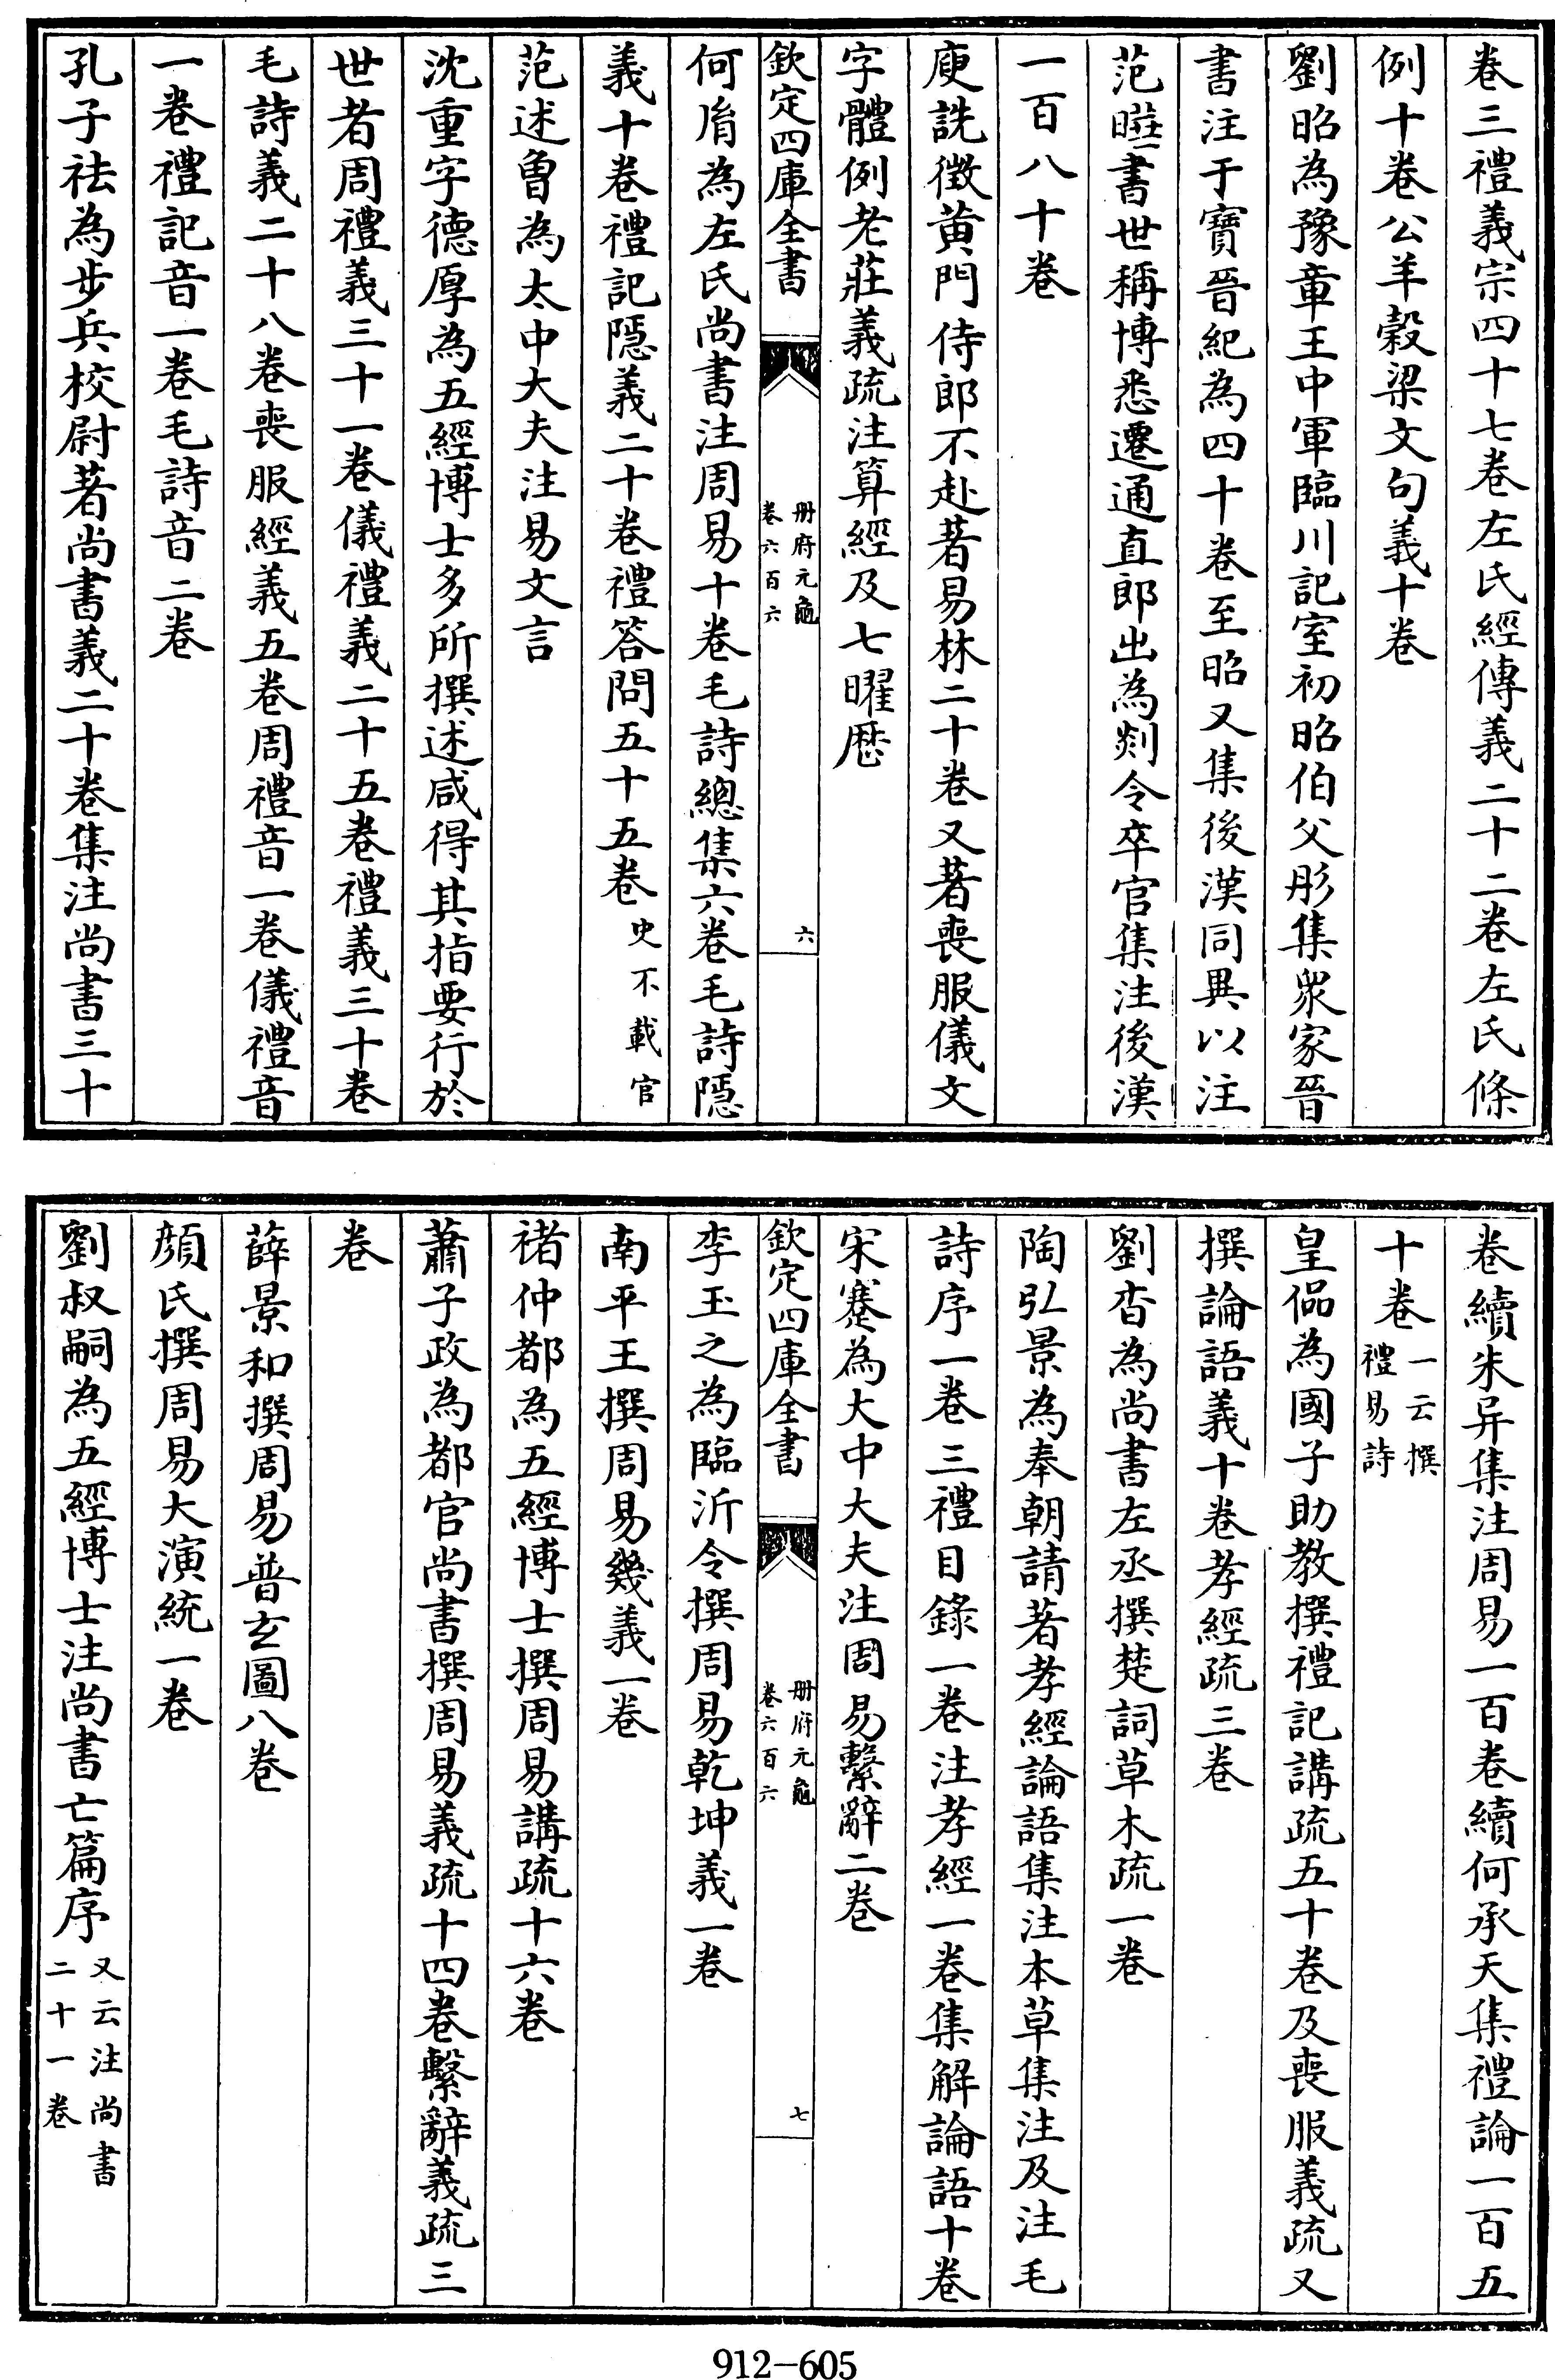 卷三禮義宗四十七卷左氏經傳義二十二卷左氏條
例十卷公羊穀梁文句義十卷
劉昭為豫章王中軍臨川記室初昭伯父彤集衆家晉
書注于寶晉紀為四十卷至昭又集後漢同異以注
范曄書世稱博悉遷通直郎出為剡令卒官集注後漢
一百八十卷
庾詵徵黄門侍郎不赴著易林二十卷又著喪服儀文
字體例老莊義疏注算經及七曜歴
欽定四庫全書
册府元龜
卷六百六
六
何㣧為左氏尚書注周易十卷毛詩總集六卷毛詩隱
義十卷禮記隱義二十卷禮答問五十五卷史不載官
范述曾為太中大夫注易文言
沈重字德厚為五經博士多所撰述咸得其指要行於
世者周禮義三十一卷儀禮義二十五卷禮義三十卷
毛詩義二十八卷喪服經義五卷周禮音一卷儀禮音
一卷禮記音一卷毛詩音二卷
孔子祛為步兵校尉著尚書義二十卷集注尚書三十
卷續朱异集注周易一百卷續何承天集禮論一百五
十卷一云撰禮易詩
皇侃為國子助教撰禮記講疏五十卷及喪服義疏又
撰論語義十卷孝經疏三卷
劉杳為尚書左丞撰楚詞草木疏一卷
陶弘景為奉朝請著孝經論語集注本草集注及注毛
詩序一卷三禮目錄一卷注孝經一卷集解論語十卷
宋蹇為大中大夫注周易繫辭二卷
欽定四庫全書
册府元龜
卷六百六
七
李玉之為臨沂令撰周易乾坤義一卷
南平王撰周易幾義一卷
禇仲都為五經博士撰周易講疏十六卷
蕭子政為都官尚書撰周易義疏十四卷繫辭義疏三
卷
薛景和撰周易普玄圖八卷
顔氏撰周易大演統一卷
劉叔嗣為五經博士注尚書亡篇序又云注尚書二十一卷
912-605